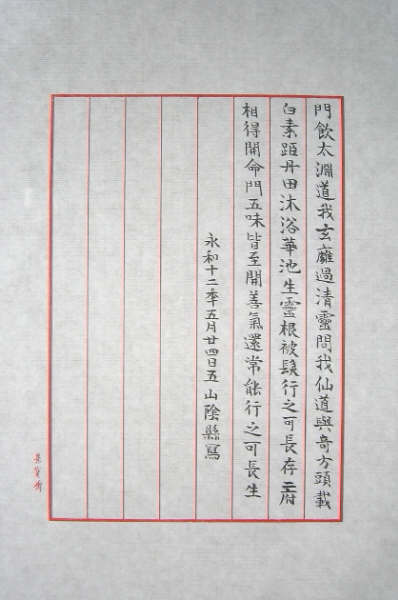 門飲太淵道我玄廱過清靈問我仙道與奇方頭載
白素距丹田沐浴華池生靈根被髮行之可長存二府
相得開命門五味皆至開善氣還常能行之可長生
永和十二年五月廿四日五山陰縣寫